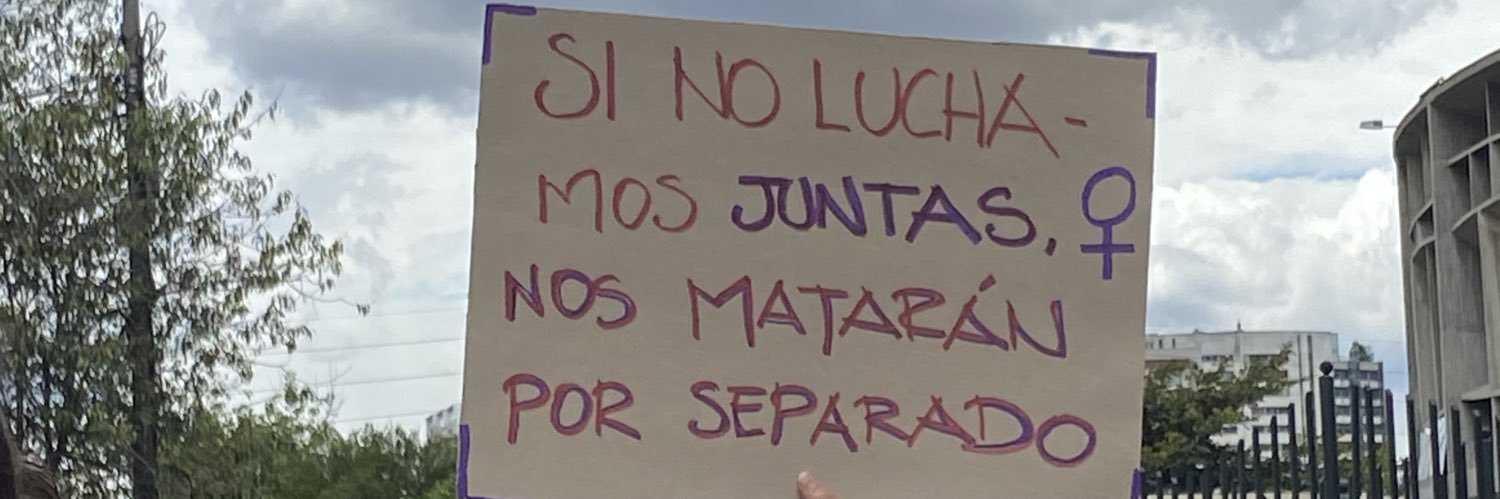 SI NO LUCHA-
MOS JUNTAS, ♀
NOS MATARÁN
POR SEPARADO